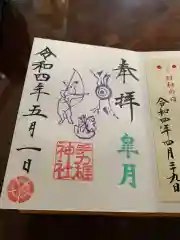 奉拝
皐月
令和四年五月一日
神社
令和四年四月二十九日